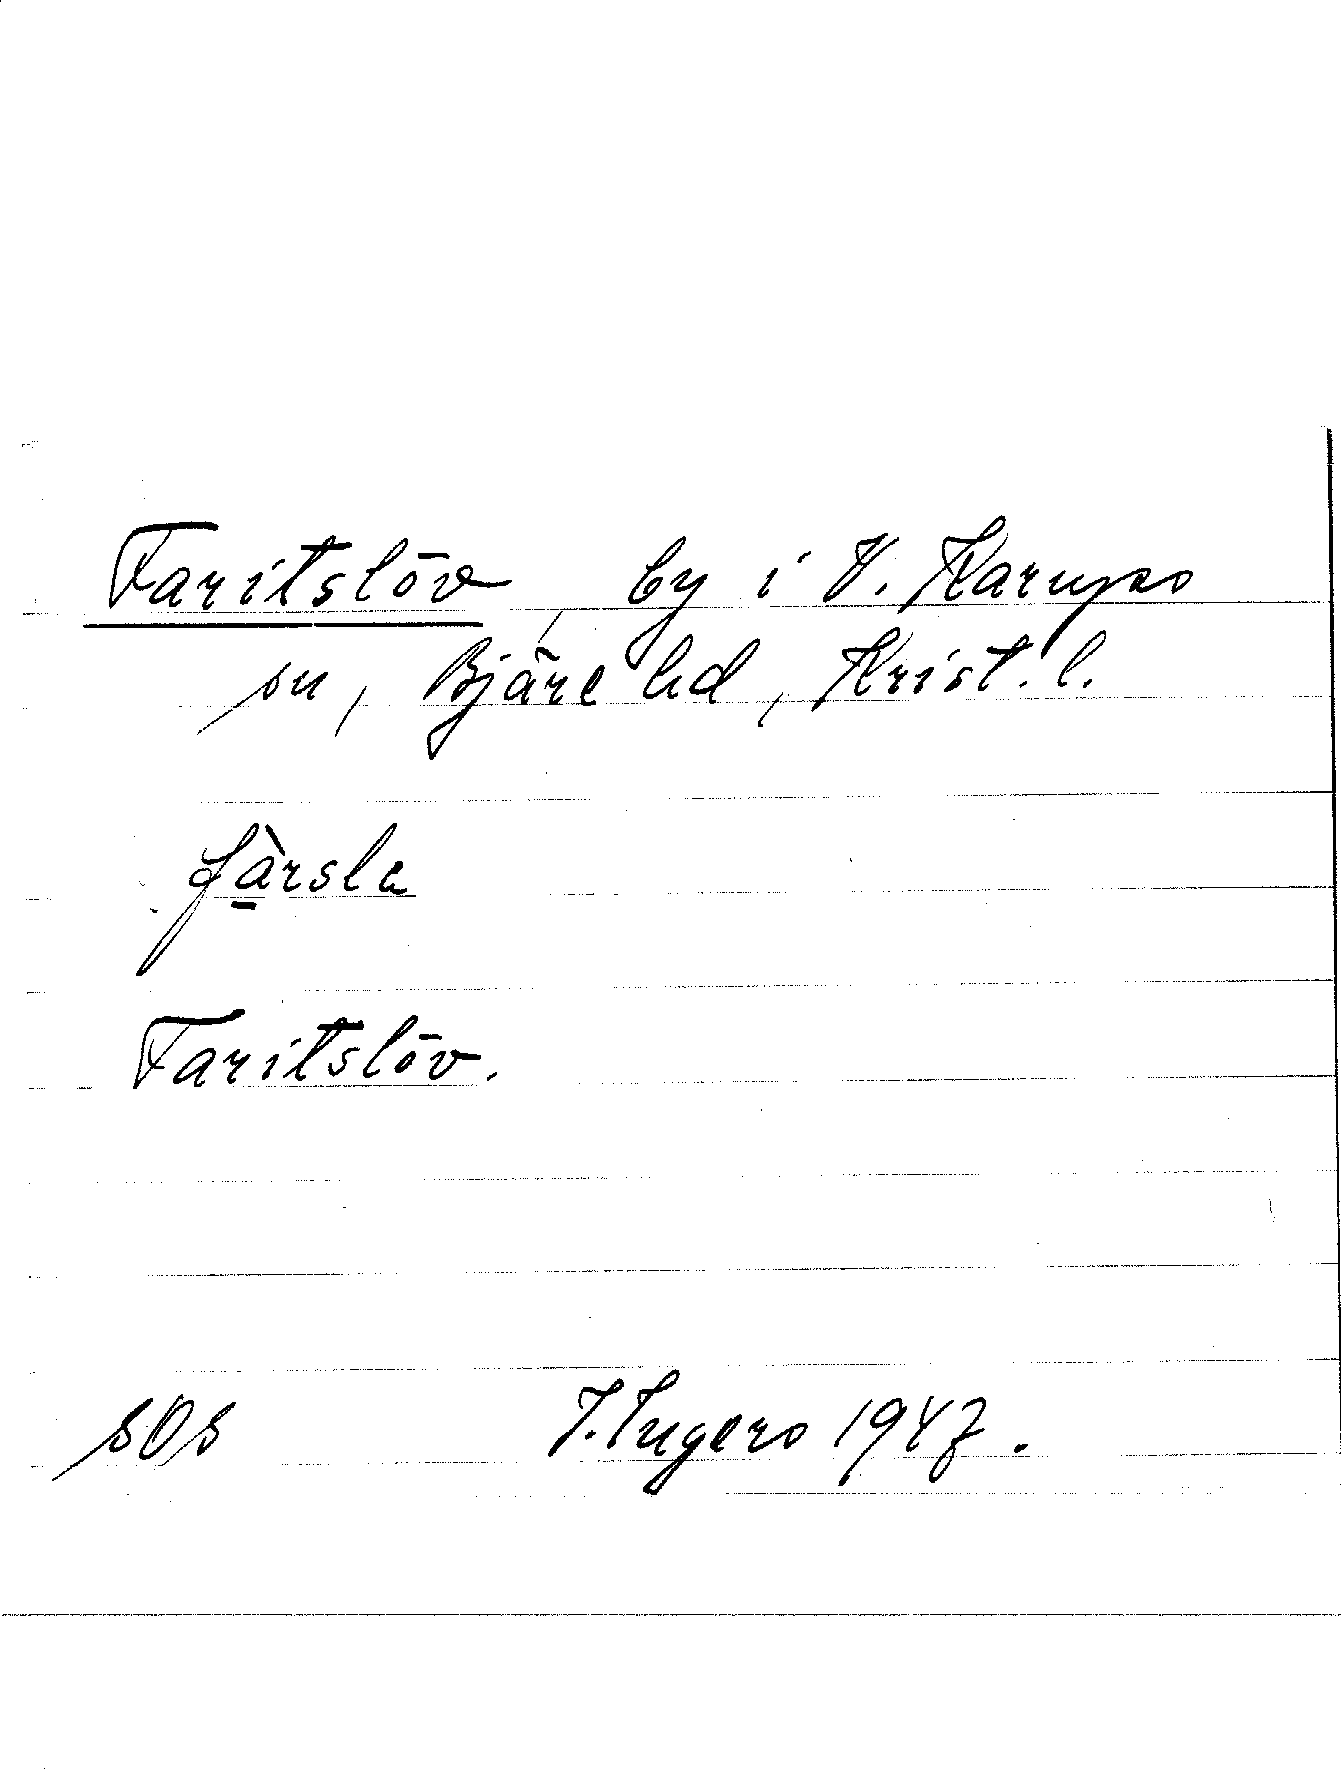 Faritslöv, by i V. Karups
sn, Bjäre hd, Krist. l.
fàrsla
Faritslöv.
SOS I. Ingers 1947.